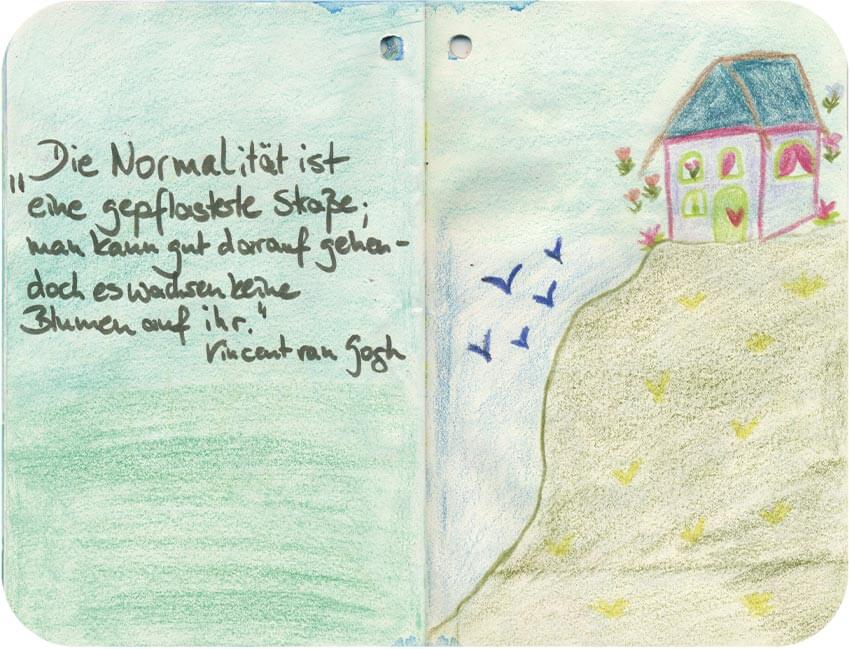 „Die Normalität ist
eine gepflasterte Straße;
man kann gut darauf gehen -
doch es wachsen keine
Blumen auf ihr."
Vincent van Gogh